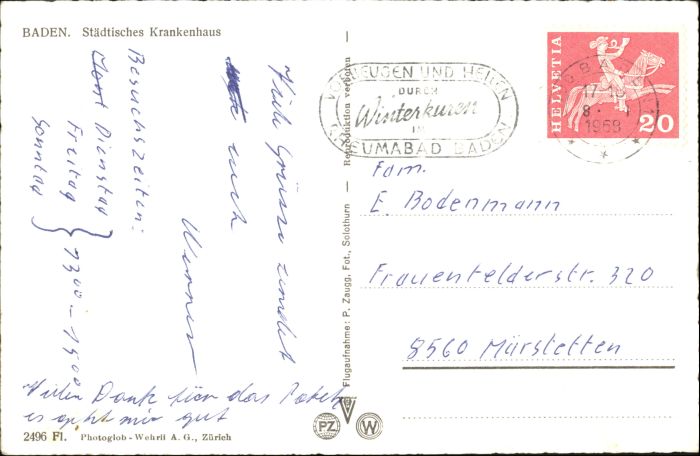 BADEN. Städtisches Krankenhaus
Viele Grüsse sendet
euch
Werner
Besuchszeiten:
Dienstag
Freitag
Sonntag
1300 – 1500
Vielen Dank für das Paket
es geht mir gut
2496 Fl. Photoglob-Wehrli A. G., Zürich
Reproduktion verboten
Flugaufnahme: P. Zaugg, Fot., Solothurn
PZ
W
VORBEUGEN UND HEILEN
DURCH
Winterkuren
IM
RHEUMABAD BADEN
HELVETIA
20
17-18
1968
Fam.
E. Bodenmann
Frauenfelderstr. 320
8560 Märstetten